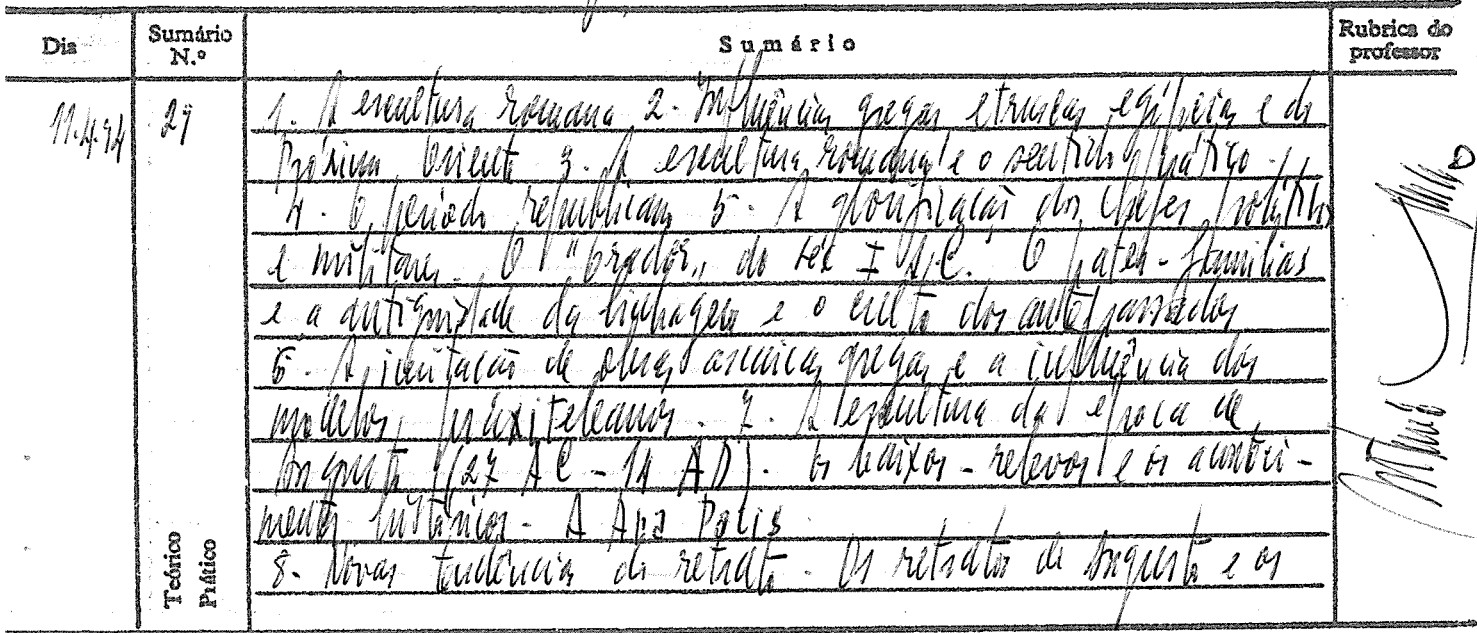 Dia Sumário N.º Sumário Rubrica do professor
11.4.94 29 1. A escultura romana 2. Influências gregas etruscas egípcia e do
Próximo Oriente 3. A escultura romana e o sentido prático.
4. O período republicano 5. A glorificação dos chefes políticos
e militares. O "Orador" do séc I A.C. O pater-familias
e a antiguidade da linhagem e o culto dos antepassados
6. A imitação de obras arcaicas gregas e a influência dos
modelos praxiteleanos. 7. A escultura da época de
Augusto (27 AC - 14 AD). Os baixos-relevos e os aconteci-
mentos históricos. A Ara Pacis
8. Novas tendências do retrato. Os retratos de Augusto e os
Teórico
Prático